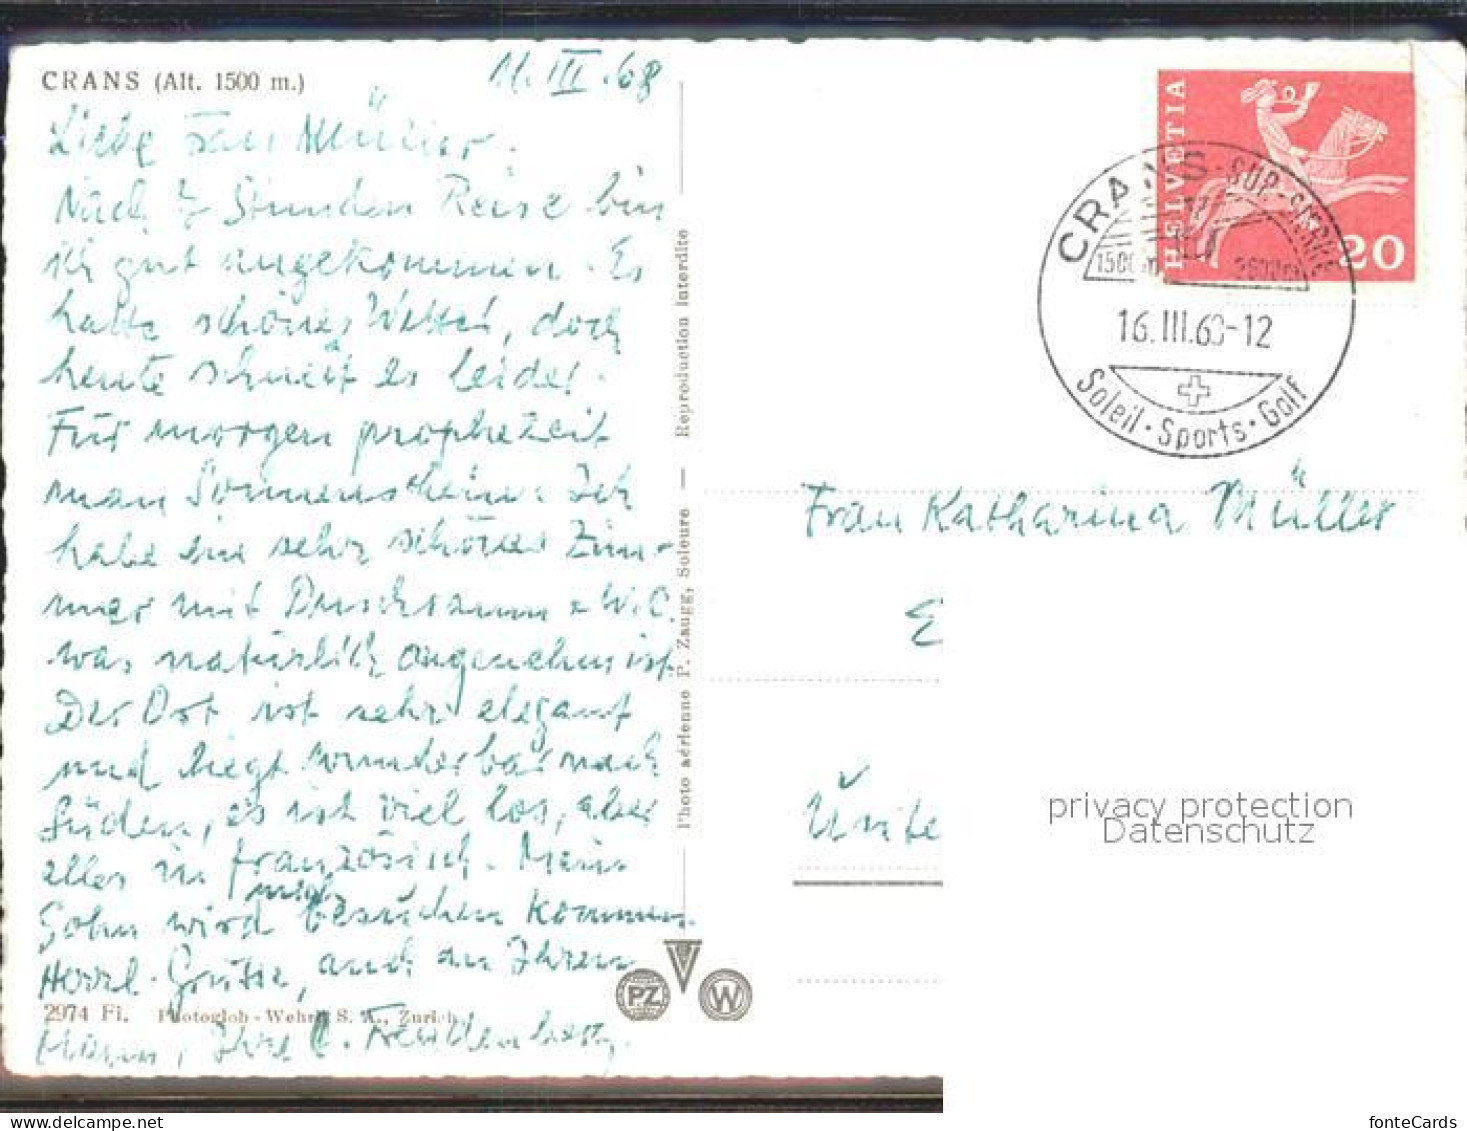 CRANS (Alt. 1500 m.)
11. III. 68
Liebe Frau Müller.
Nach ½ Stunden Reise bin
ich gut angekommen. Es
hatte schönes Wetter, doch
heute schneit es leider.
Für morgen prophezeit
man Sonnenschein. Ich
habe ein sehr schönes Zim-
mer mit Duschraum + W.C.
was natürlich angenehm ist.
Der Ort ist sehr elegant
und liegt wunderbar nach
Süden, es ist viel los, aber
alles in französisch. Mein
Sohn wird mich besuchen kommen.
Herzl. Grüsse, auch an Ihren
2974 Fi. Photoglob-Wehrli S. A., Zurich
Mann, Ihre
Photo aérienne P. Zaugg, Soleure — Reproduction interdite
PZ W
HELVETIA
20
CRANS-SUR-SIERRE
1500 m
16.III.68-12
Soleil · Sports · Golf
Frau Katharina Müller
E
Unte
privacy protection
Datenschutz
fonteCards